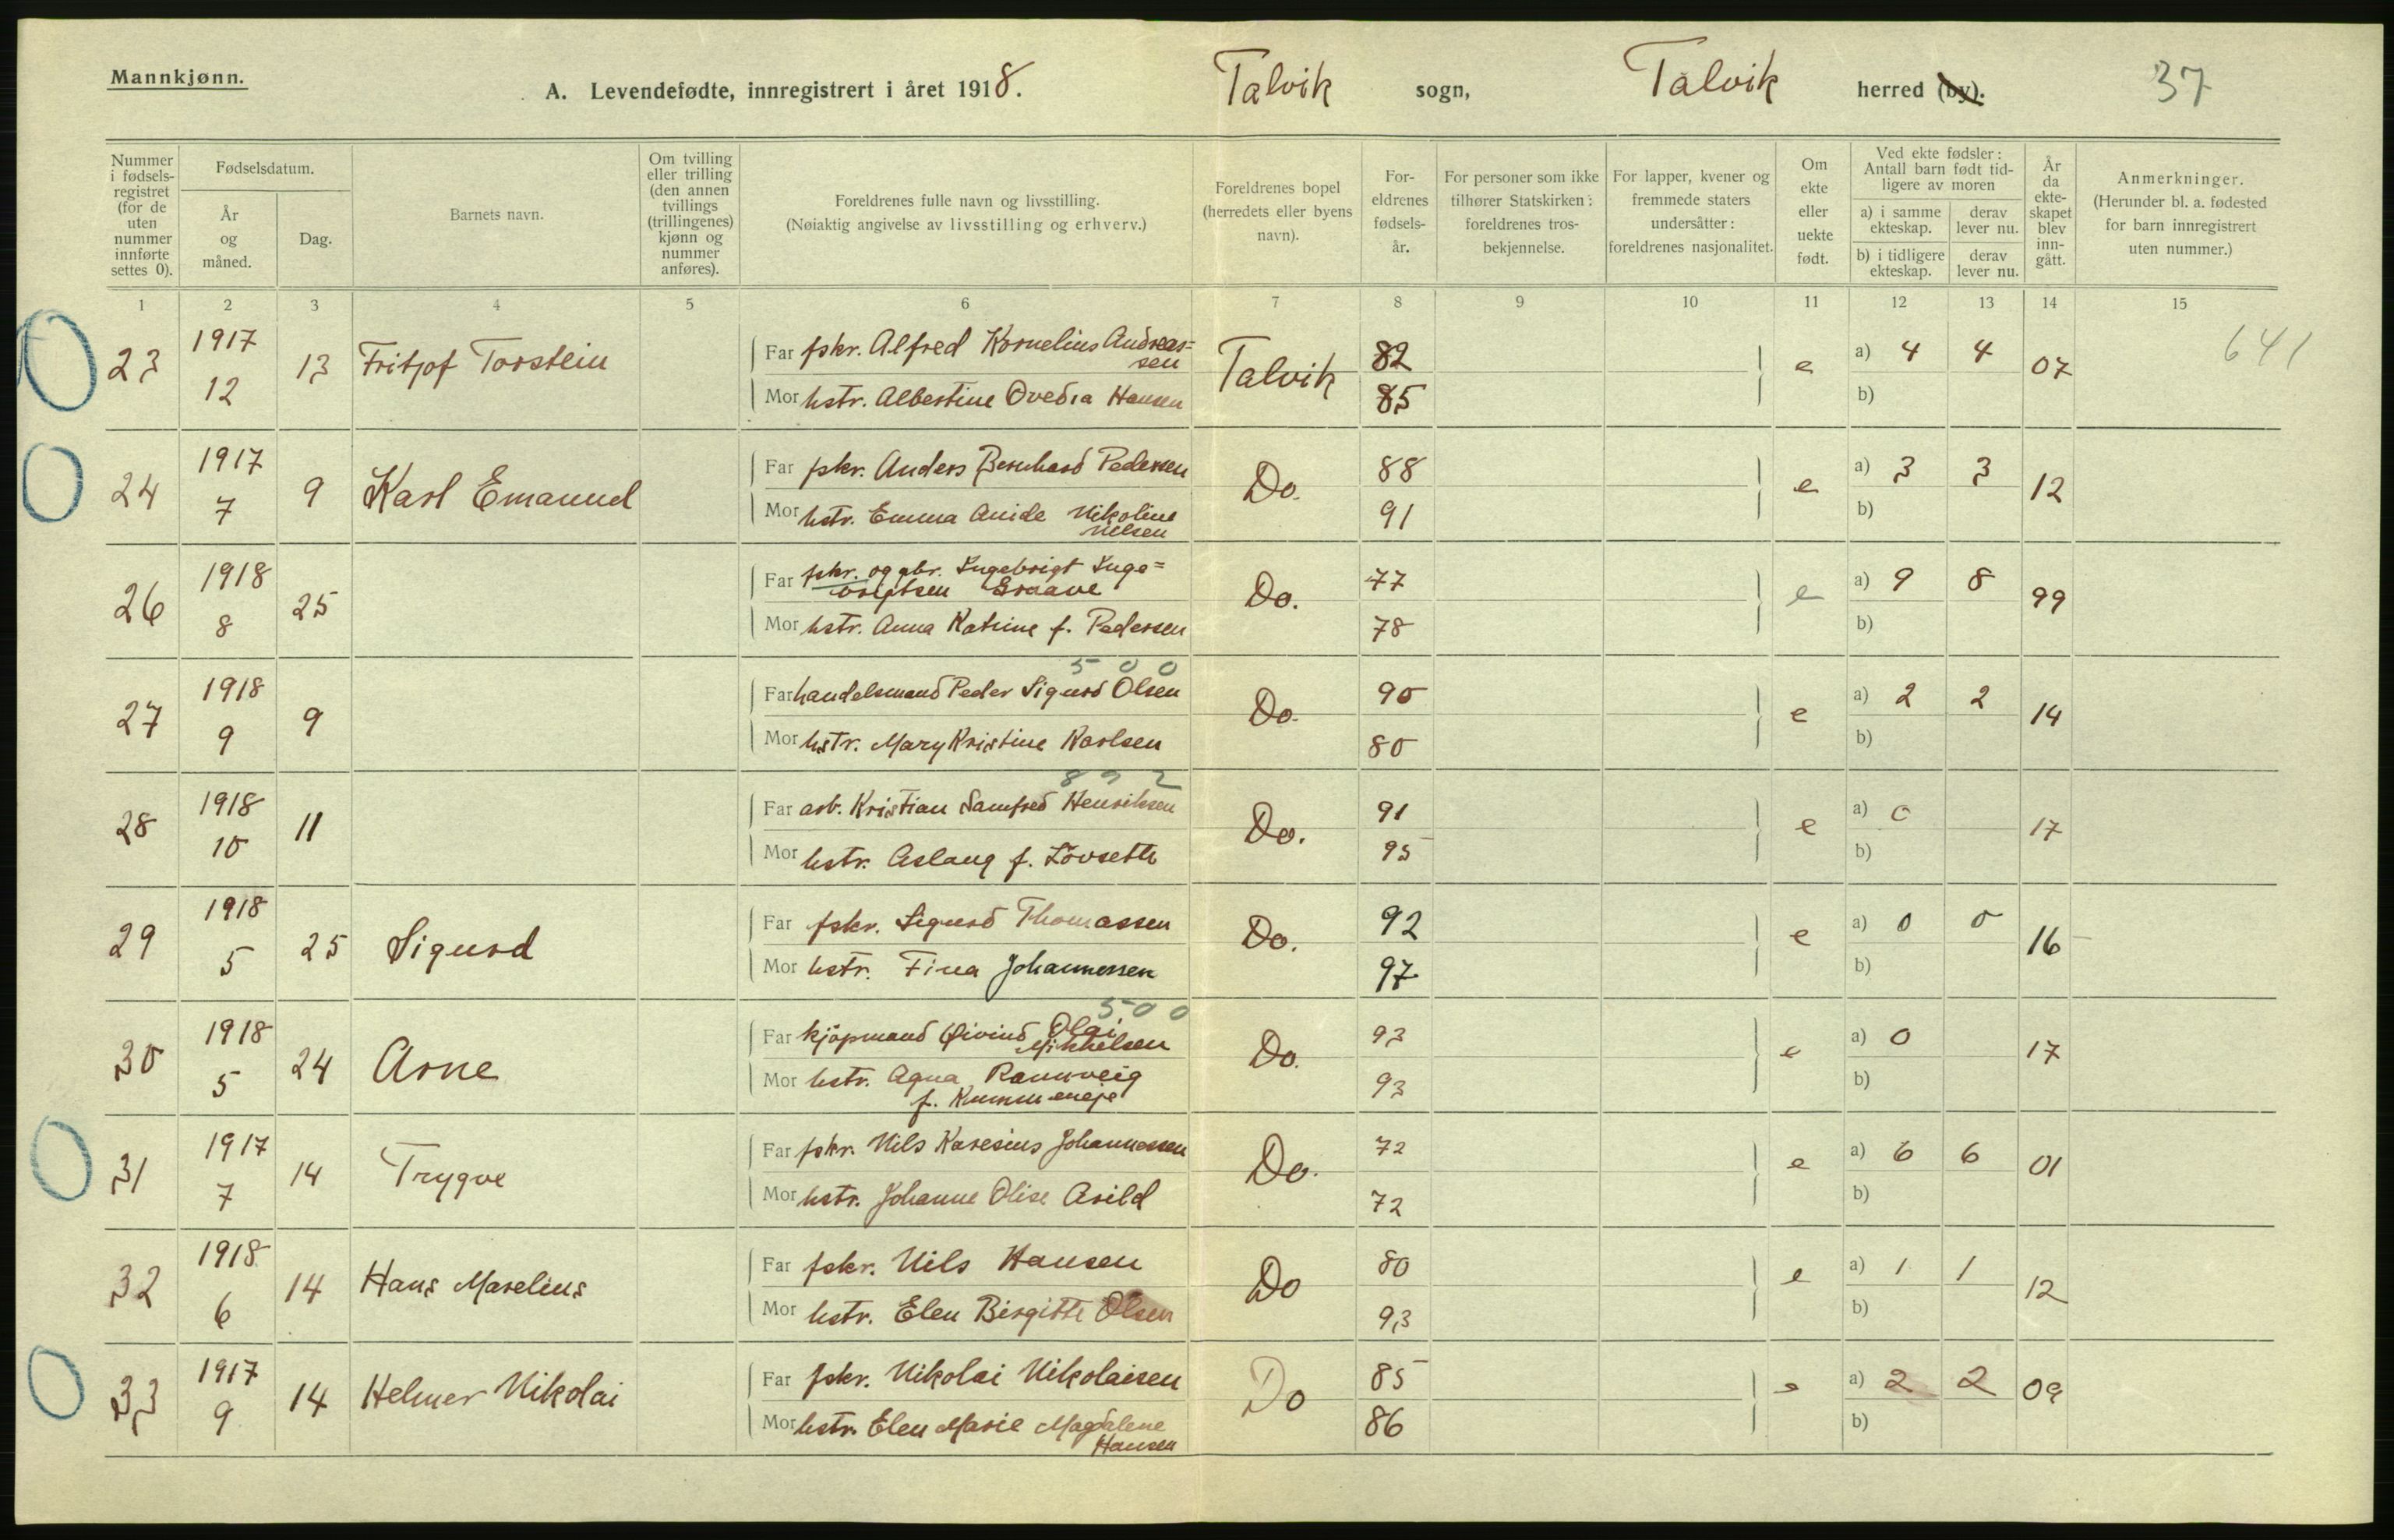 Mannkjønn.
A. Levendefødte, innregistrert i året 1918. Talvik sogn, Talvik herred (by). 37
Nummer i fødsels-registret (for de uten nummer innførte settes 0).
Fødselsdatum.
År og måned.
Dag.
Barnets navn.
Om tvilling eller trilling (den annen tvillings (trillingenes) kjønn og nummer anføres).
Foreldrenes fulle navn og livsstilling.
(Nøiaktig angivelse av livsstilling og erhverv.)
Foreldrenes bopel (herredets eller byens navn).
For-eldrenes fødsels-år.
For personer som ikke tilhører Statskirken: foreldrenes tros-bekjennelse.
For lapper, kvener og fremmede staters undersåtter: foreldrenes nasjonalitet.
Om ekte eller uekte født.
Ved ekte fødsler: Antall barn født tid-ligere av moren
a) i samme ekteskap.
derav lever nu.
b) i tidligere ekteskap.
derav lever nu.
År da ekte-skapet blev inn-gått.
Anmerkninger.
(Herunder bl. a. fødested for barn innregistrert uten nummer.)
1 2 3 4 5 6 7 8 9 10 11 12 13 14 15
23 1917 12 13 Fritjof Torstein
Far fskr. Alfred Kornelius Andreas=
sen Talvik 82 e a) 4 4 07 641
Mor hstr. Albertine Ovedia Hansen 85 b)
24 1917 7 9 Karl Emanuel
Far fskr. Anders Bernhard Pedersen Do. 88 e a) 3 3 12
Mor hstr. Emma Anide Nikoline
Nilsen 91 b)
26 1918 8 25
Far fskr. og gbr. Ingebrigt Inge=
brigtsen Do. 77 e a) 9 8 99
Mor hstr. Anna Katrine f. Pedersen 78 b)
500
27 1918 9 9
Far handelsmand Peder Sigurd Olsen Do. 90 e a) 2 2 14
Mor hstr. Mary Kristine Karlsen 80 b)
28 1918 10 11
Far arb. Kristian Samfred Henriksen Do. 91 e a) 0 17
Mor hstr. Aslaug f. Lövseth 95 b)
29 1918 5 25 Sigurd
Far fskr. Sigurd Thomassen Do. 92 e a) 0 0 16
Mor hstr. Fina Johannessen 97 b)
500
30 1918 5 24 Arne
Far kjöpmand Øivind Olai
Mikkelsen Do. 93 e a) 0 17
Mor hstr. Agna Rannveig
f. Kummeneje 93 b)
31 1917 7 14 Trygve
Far fskr. Nils Karesius Johannessen Do. 72 e a) 6 6 01
Mor hstr. Johanne Olise Arild 72 b)
32 1918 6 14 Hans Marelius
Far fskr. Nils Hansen Do 80 e a) 1 1 12
Mor hstr. Elen Birgitte Olsen 93 b)
33 1917 9 14 Helmer Nikolai
Far fskr. Nikolai Nikolaisen Do 85 e a) 2 2 09
Mor hstr. Elen Marie Magdalene
Hansen 86 b)